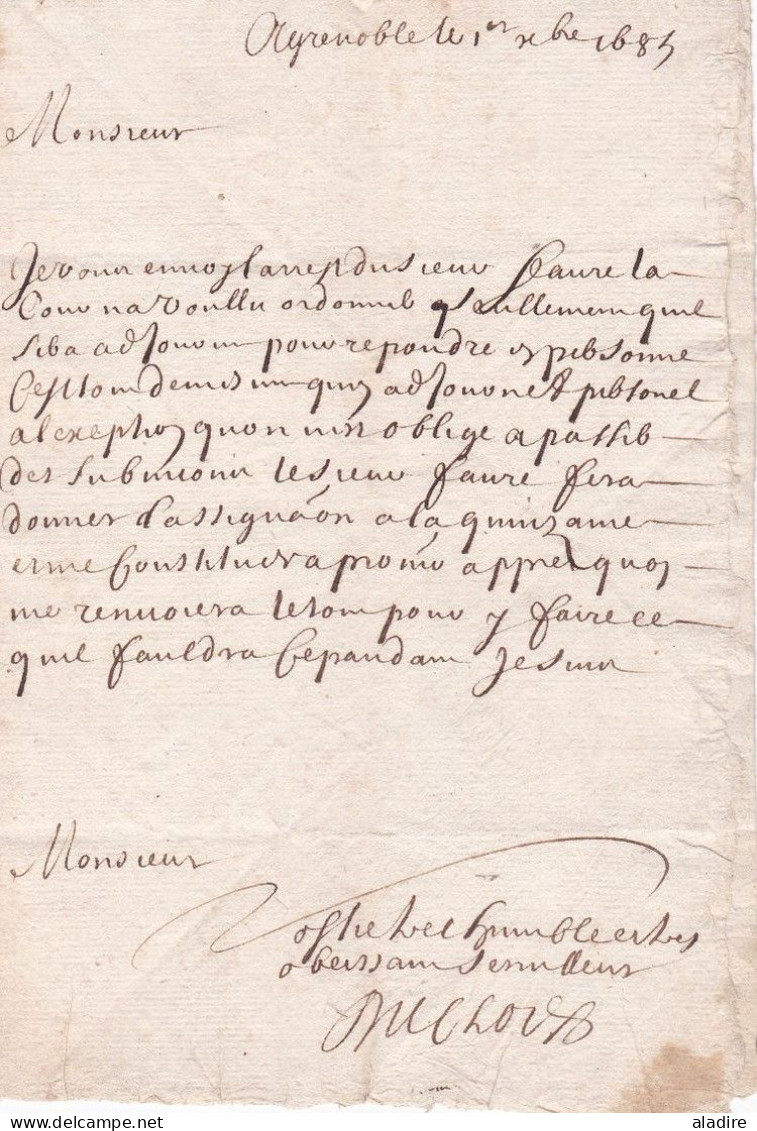 A grenoble le 1er xbre 1685
Monsieur
Je vous envoy larrest du sieur faure la
Cour na voullu ordonner seullement quil
sera adjourné pour repondre en personne
Cest tou de mesme quun adjournet personel
a lexeption quon nest oblige a passer
des submions le sieur faure fera
donner lassignaon a la quinzaine
et me Constituera pro apprez quoy
me renvoiera le tout pour y faire ce
quil fauldra Cepandam Je suis
Monsieur
Vostre tres humble et tres
obeissam serviteur